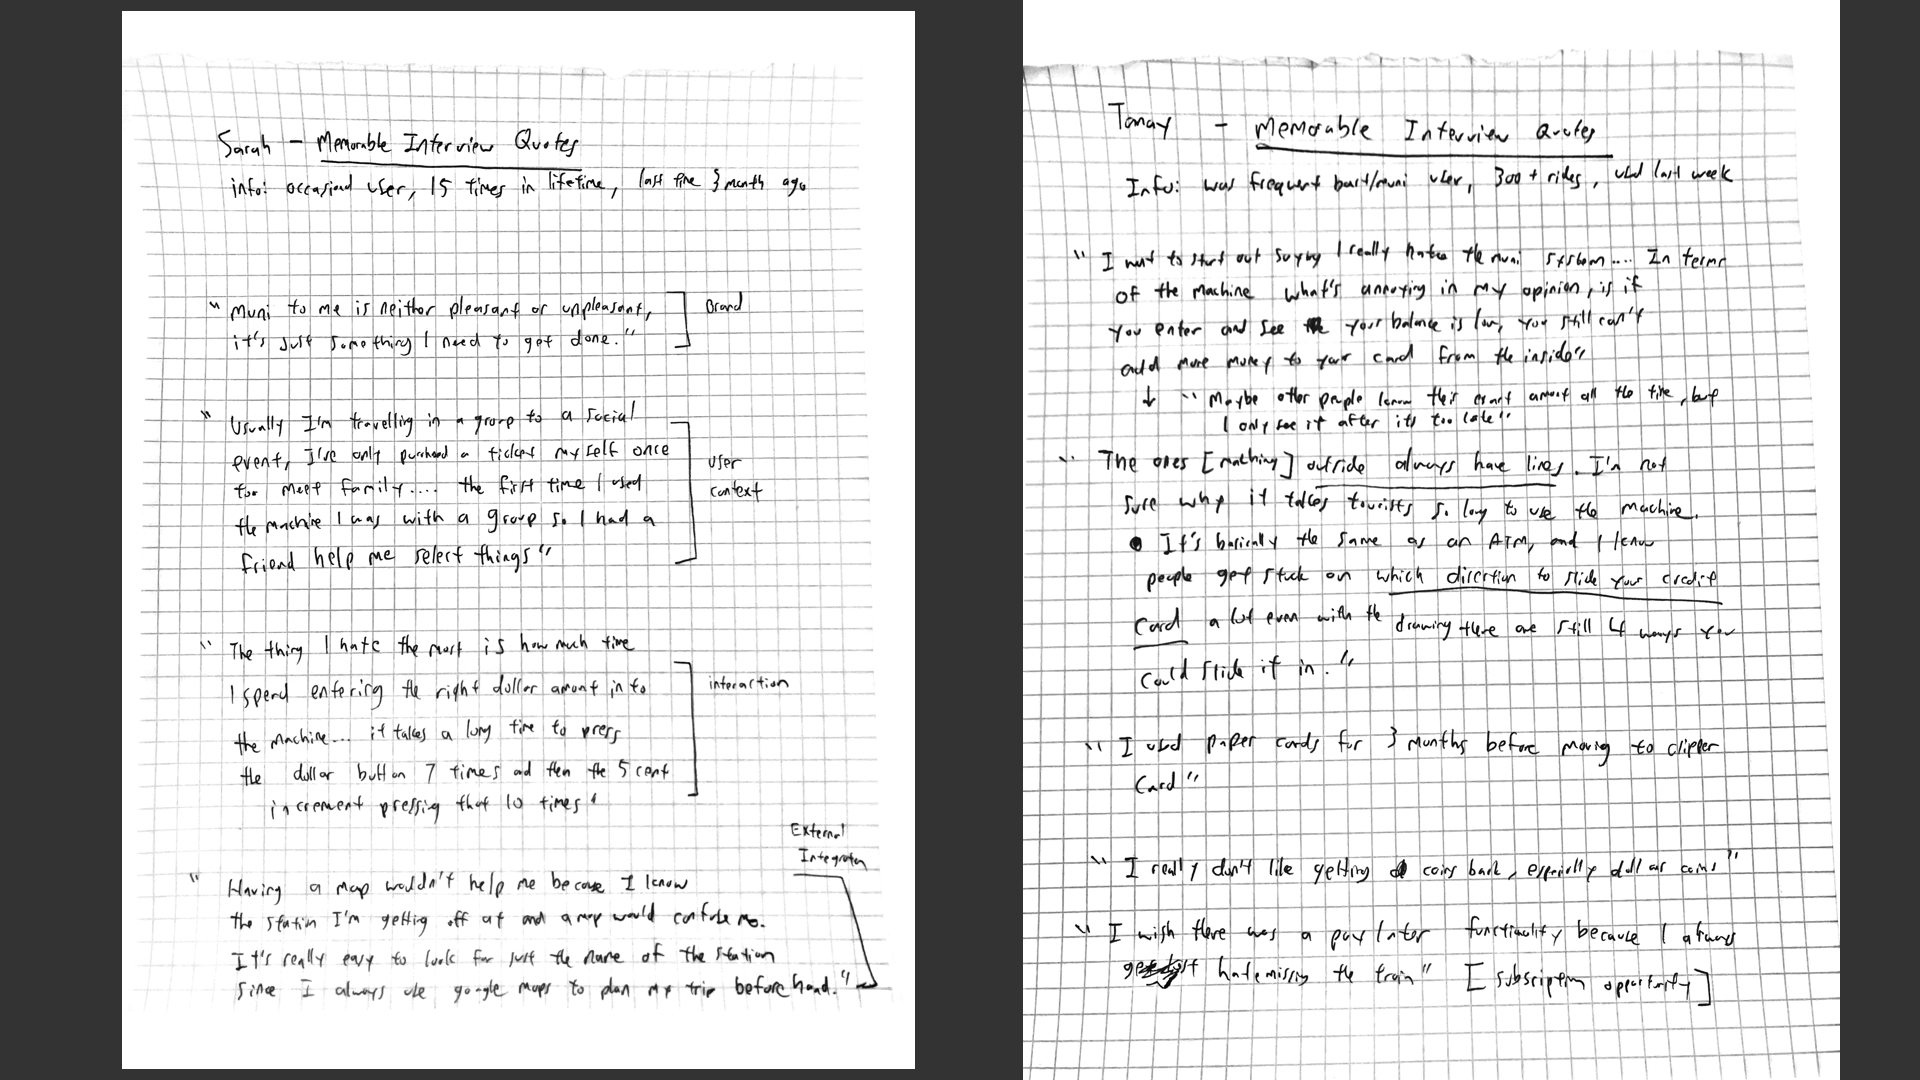 Sarah - Memorable Interview Quotes
info: occasional user, 15 times in lifetime, last time 3 month ago
"Muni to me is neither pleasant or unpleasant,
it's just something I need to get done."
Brand
"Usually I'm travelling in a group to a social
event, I've only purchased a ticket myself once
for meet family.... the first time I used
the machine I was with a group so I had a
friend help me select things"
User
context
"The thing I hate the most is how much time
I spend entering the right dollar amount in to
the machine... it takes a long time to press
the dollar button 7 times and then the 5 cent
increment pressing that 10 times"
interaction
External
Integration
"Having a map wouldn't help me because I know
the station I'm getting off at and a map would confuse me.
It's really easy to look for just the name of the station
since I always use google maps to plan my trip before hand."
Tanay - Memorable Interview Quotes
Info: was frequent bart/muni user, 300+ rides, used last week
"I want to start out saying I really hate the muni system.... In terms
of the machine what's annoying in my opinion, is if
you enter and see your balance is low, you still can't
add more money to your card from the inside"
↓ "Maybe other people know their exact amount all the time, but
I only see it after its too late"
"The ones [machine] outside always have lines. I'm not
sure why it takes tourists so long to use the machine.
It's basically the same as an ATM, and I know
people get stuck on which direction to slide your credit
card a lot even with the drawing there are still 4 ways you
could slide it in."
"I used paper cards for 3 months before moving to clipper
card"
"I really don't like getting coins back, especially dollar coins"
"I wish there was a pay later functionality because I always
hate missing the train" [subscription opportunity]